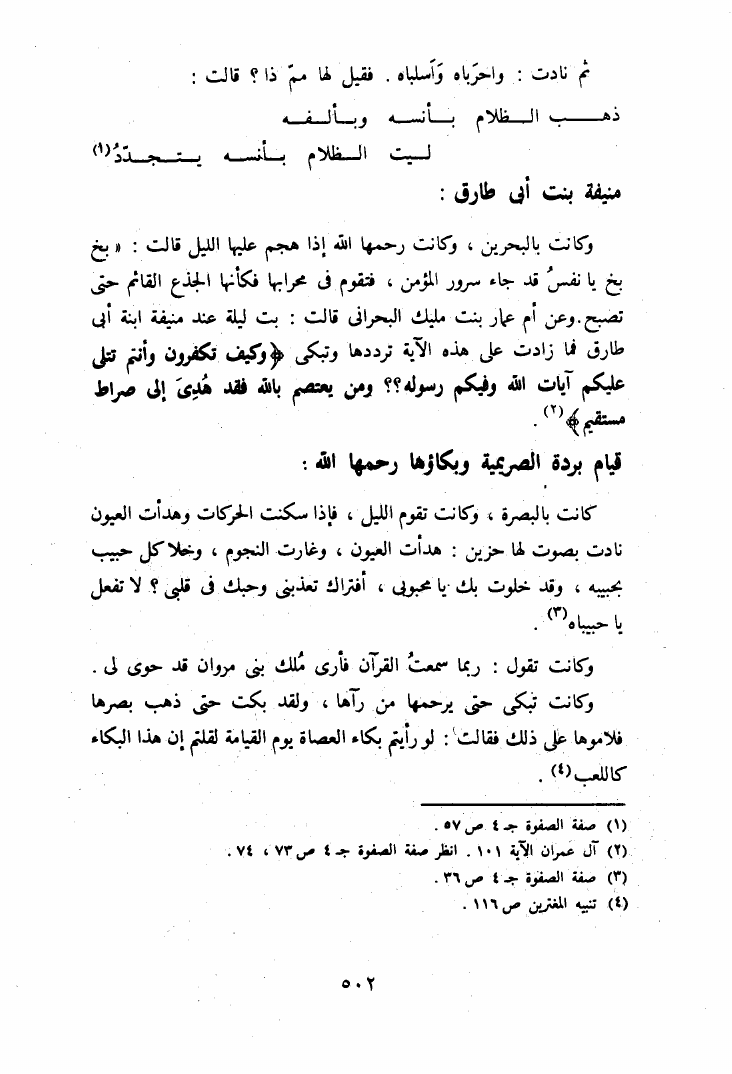 ثم نادت : واحرَباه وَاَسلباه . فقيل لها ممّ ذا ؟ قالت :
ذهـب الـظلام بـأنسـه وبـألـفـه
لـيت الـظلام بـأنسـه يـتـجـدّدُ(١)
منيفة بنت أبى طارق :
وكانت بالبحرين ، وكانت رحمها الله إذا هجم عليها الليل قالت : « بخ
بخ يا نفسُ قد جاء سرور المؤمن ، فتقوم فى محرابها فكأنها الجذع القائم حتى
تصبح.وعن أم عمار بنت مليك البحرانى قالت : بت ليلة عند منيفة ابنة أبى
طارق فما زادت على هذه الآية ترددها وتبكى ﴿وكيف تكفرون وأنتم تتلى
عليكم آيات الله وفيكم رسوله؟؟ ومن يعتصم بالله فقد هُدِىَ إلى صراط
مستقيم﴾(٢) .
قيام بردة الصريمية وبكاؤها رحمها الله :
كانت بالبصرة ، وكانت تقوم الليل ، فإذا سكنت الحركات وهدأت العيون
نادت بصوت لها حزين : هدأت العيون ، وغارت النجوم ، وخلا كل حبيب
بحبيبه ، وقد خلوت بك يا محبوبى ، أفتراك تعذبنى وحبك فى قلبى ؟ لا تفعل
يا حبيباه(٣) .
وكانت تقول : ربما سمعتُ القرآن فأرى مُلك بنى مروان قد حوى لى .
وكانت تبكى حتى يرحمها من رآها ، ولقد بكت حتى ذهب بصرها
فلاموها على ذلك فقالت : لو رأيتم بكاء العصاة يوم القيامة لقلتم إن هذا البكاء
كاللعب(٤) .
(١) صفة الصفوة جـ ٤ ص ٥٧ .
(٢) آل عمران الآية ١٠١ . انظر صفة الصفوة جـ ٤ ص ٧٣ ، ٧٤ .
(٣) صفة الصفوة جـ ٤ ص ٣٦ .
(٤) تنبيه المغترين ص ١١٦ .
٥٠٢